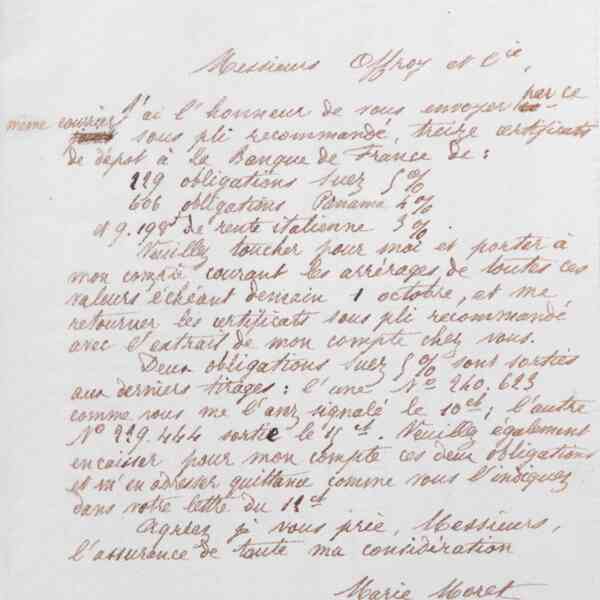 Messieurs Offroy et Cie,
J'ai l'honneur de vous envoyer par ce
même courrier sous pli recommandé, treize certificats
de dépôt à la Banque de France de :
229 obligations Suez 5 %
606 obligations Panama 4 %
et 9.198f de rente italienne 5 %.
Veuillez toucher pour moi et porter à
mon compte courant les arrérages de toutes ces
valeurs échéant demain 1 octobre, et me
retourner les certificats sous pli recommandé
avec l'extrait de mon compte chez vous.
Deux obligations Suez 5 % sont sorties
aux derniers tirages : l'une No 240.623
comme vous me l'avez signalé le 10 ct ; l'autre
No 229.444 sortie le 15 ct. Veuillez également
encaisser pour mon compte ces deux obligations
et m'en adresser quittance comme vous l'indiquez
dans votre lettre du 12 ct
Agréez je vous prie, Messieurs,
l'assurance de toute ma considération
Marie Moret